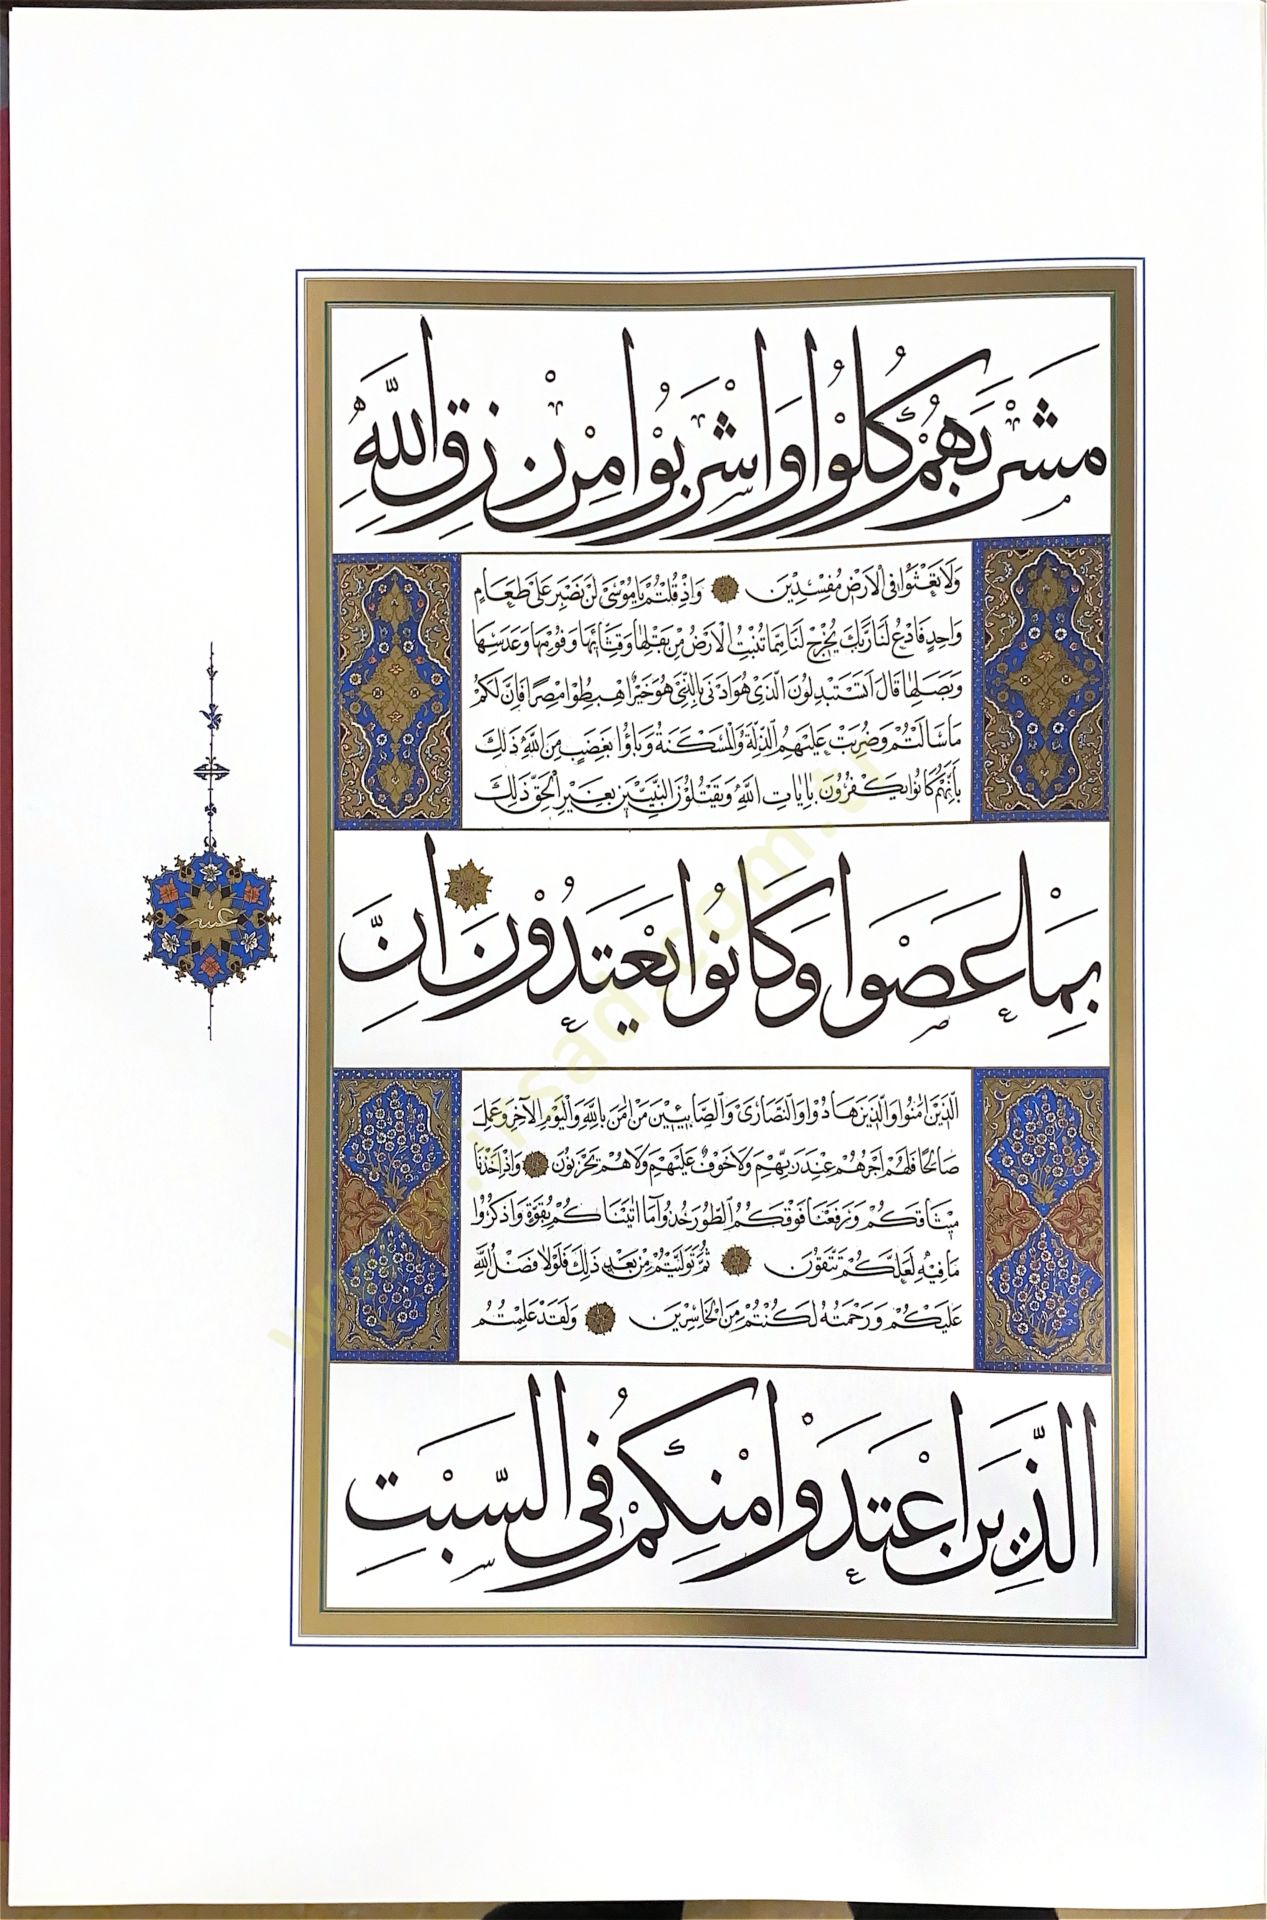 مَشْرَبَهُمْ كُلُوا وَاشْرَبُوا مِنْ رِزْقِ اللَّهِ
وَلَا تَعْثَوْا فِي الْأَرْضِ مُفْسِدِينَ وَإِذْ قُلْتُمْ يَا مُوسَى لَنْ نَصْبِرَ عَلَى طَعَامٍ
وَاحِدٍ فَادْعُ لَنَا رَبَّكَ يُخْرِجْ لَنَا مِمَّا تُنْبِتُ الْأَرْضُ مِنْ بَقْلِهَا وَقِثَّائِهَا وَفُومِهَا وَعَدَسِهَا
وَبَصَلِهَا قَالَ أَتَسْتَبْدِلُونَ الَّذِي هُوَ أَدْنَى بِالَّذِي هُوَ خَيْرٌ اهْبِطُوا مِصْرًا فَإِنَّ لَكُمْ
مَا سَأَلْتُمْ وَضُرِبَتْ عَلَيْهِمُ الذِّلَّةُ وَالْمَسْكَنَةُ وَبَاؤُا بِغَضَبٍ مِنَ اللَّهِ ذَلِكَ
بِأَنَّهُمْ كَانُوا يَكْفُرُونَ بِآيَاتِ اللَّهِ وَيَقْتُلُونَ النَّبِيِّينَ بِغَيْرِ الْحَقِّ ذَلِكَ
بِمَا عَصَوْا وَكَانُوا يَعْتَدُونَ إِنَّ
الَّذِينَ آمَنُوا وَالَّذِينَ هَادُوا وَالنَّصَارَى وَالصَّابِئِينَ مَنْ آمَنَ بِاللَّهِ وَالْيَوْمِ الْآخِرِ وَعَمِلَ
صَالِحًا فَلَهُمْ أَجْرُهُمْ عِنْدَ رَبِّهِمْ وَلَا خَوْفٌ عَلَيْهِمْ وَلَا هُمْ يَحْزَنُونَ وَإِذْ أَخَذْنَا
مِيثَاقَكُمْ وَرَفَعْنَا فَوْقَكُمُ الطُّورَ خُذُوا مَا آتَيْنَاكُمْ بِقُوَّةٍ وَاذْكُرُوا
مَا فِيهِ لَعَلَّكُمْ تَتَّقُونَ ثُمَّ تَوَلَّيْتُمْ مِنْ بَعْدِ ذَلِكَ فَلَوْلَا فَضْلُ اللَّهِ
عَلَيْكُمْ وَرَحْمَتُهُ لَكُنْتُمْ مِنَ الْخَاسِرِينَ وَلَقَدْ عَلِمْتُمُ
الَّذِينَ اعْتَدَوْا مِنْكُمْ فِي السَّبْتِ